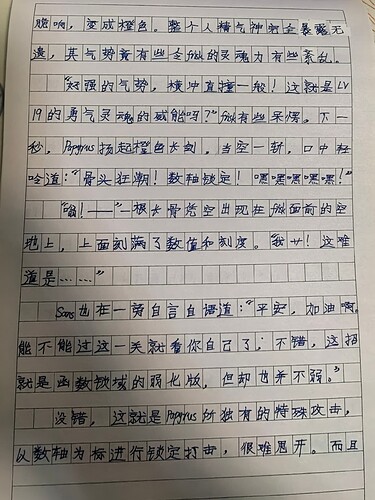 脆响，变成橙色。整个人精气神完全暴露无
遗，其气势竟有些令frisk的灵魂力有些紊乱。
“好强的气势，横冲直撞一般！这就是LV
19的勇气灵魂的威能吗？”frisk有些呆愣。下一
秒，Papyrus扬起橙色长剑，当空一斩，口中轻
吟道：“骨头狂潮！数轴锁定！嘿嘿嘿嘿嘿！”
“嗡！——”一根长骨凭空出现在frisk面前的空
地上，上面刻满了数值和刻度。“我艹！这难
道是……”
Sans也在一旁自言自语道：“平安，加油啊。
能不能过这一关就看你自己了；不错，这招
就是函数领域的弱化版，但却也并不弱。”
没错，这就是Papyrus所独有的特殊攻击，
以数轴为标进行锁定打击，很难躲开。而且